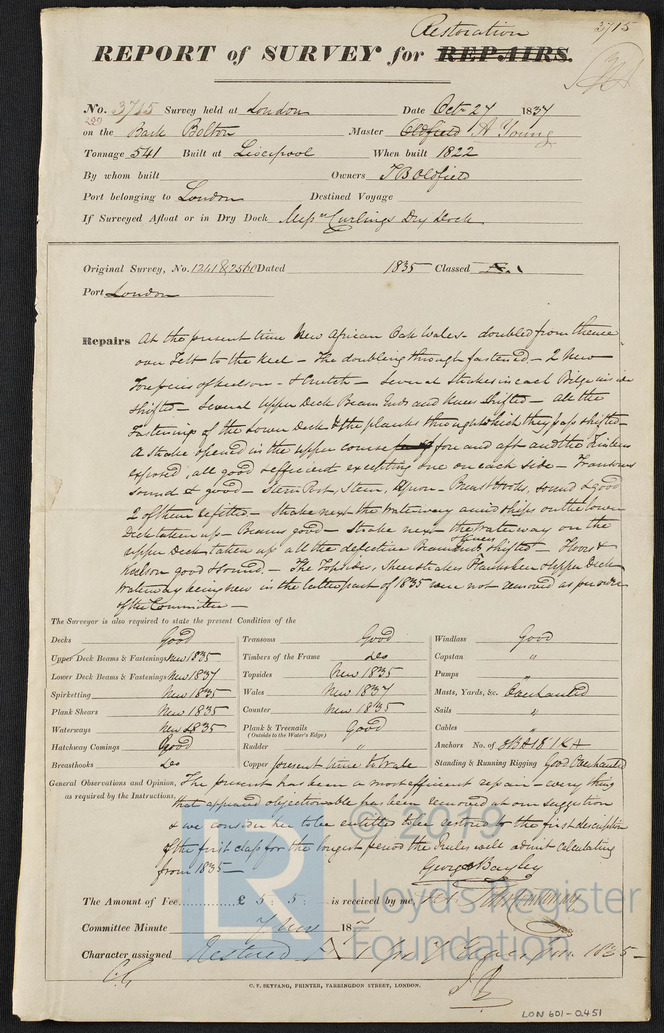 Restoration
3715
REPORT of SURVEY for REPAIRS.
No. 3715 Survey held at London Date Oct 27 1837
on the Bark Bolton Master Oldfield A Young
Tonnage 541 Built at Liverpool When built 1822
By whom built Owners T B Oldfield
Port belonging to London Destined Voyage
If Surveyed Afloat or in Dry Dock Messrs Curlings Dry Dock
Original Survey, No. 1241 & 2560 Dated 1835 Classed A.1
Port London
Repairs At the present time New African Oak Wales - doubled from thence
over Felt to the Keel - The doubling through fastened - 2 New
Forepieces of Keelson - & Crutch - Several Strakes in each Bilge inside
shifted - Several Upper Deck Beam Ends and Knees Shifted - all the
Fastenings of the Lower Deck & the planks through which they pass shifted -
A Strake opened in the upper course fore and aft and the Timbers
exposed, all good & efficient excepting one on each side - Transoms
sound & good - Stern Post, Stem, Apron - Breasthooks, sound & good
2 of them refitted - Strake next the Waterway amidships on the lower
Deck taken up - Beams good - Strake next the Waterway on the
upper Deck taken up all the defective Beam Ends & Knees shifted - Floors &
Keelson good & sound. - The Topsides, Sheerstrakes Planksheer & Upper Deck
Waterway being new in the latter part of 1835 were not removed as per order
of the Committee -
The Surveyor is also required to state the present Condition of the
Decks Good
Upper Deck Beams & Fastenings New 1835
Lower Deck Beams & Fastenings New 1837
Spirketting New 1835
Plank Shears New 1835
Waterways New 1835
Hatchway Comings Good
Breasthooks Do
Transoms Good
Timbers of the Frame Do
Topsides New 1835
Wales New 1837
Counter New 1835
Plank & Treenails Good
(Outside to the Water's Edge)
Rudder "
Copper present time to Wale
Windlass Good
Capstan "
Pumps "
Masts, Yards, &c. Overhauled
Sails "
Cables "
Anchors No. of 3 BA 1 S 1 KA
Standing & Running Rigging Good Overhauled
General Observations and Opinion, The present has been a most efficient repair - every thing
as required by the Instructions, that appeared objectionable has been removed at our suggestion
& we consider her to be entitled to be restored to the first description
of the first class for the longest period the Rules will admit calculating
from 1835 -
George Bayley
The Amount of Fee £ 5 : 5 : is received by me,
Committee Minute 7 Nov 187
Character assigned Restored A 1 for 7 years from 1835 -
C. F. SEYFANG, PRINTER, FARRINGDON STREET, LONDON.
LON 601-0451
© 2019
LR
Lloyd's Register
Foundation